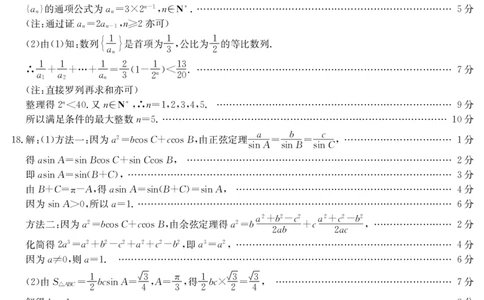 {aₙ}的通项公式为aₙ=3×2ⁿ⁻¹,n∈N*. …… 5分
(注:通过证aₙ=2aₙ₋₁,n≥2亦可)
(2)由(1)知:数列{1/aₙ}是首项为1/3,公比为1/2的等比数列.
∴1/a₁+1/a₂+…+1/aₙ=2/3(1-1/2ⁿ)<13/20. …… 7分
(注:直接罗列再求和亦可)
整理得2ⁿ<40.又n∈N*,∴n=1,2,3,4,5. …… 9分
所以满足条件的最大整数n=5. …… 10分
18.解:(1)方法一:因为a²=bcosC+ccosB,由正弦定理a/sinA=b/sinB=c/sinC, …… 1分
得asinA=sinBcosC+sinCcosB, …… 2分
即asinA=sin(B+C), …… 3分
由B+C=π-A,得asinA=sin(B+C)=sinA, …… 4分
因为sinA>0,所以a=1. …… 6分
方法二:因为a²=bcosC+ccosB,由余弦定理得a²=b(a²+b²-c²)/2ab+c(a²+c²-b²)/2ac, …… 2分
化简得2a³=a²+b²-c²+a²+c²-b²,即a³=a², …… 4分
因为a≠0,则a=1. …… 6分
(2)由S△ABC=1/2bcsinA=√3/4,A=π/3,得1/2bc×√3/2=√3/4, …… 7分